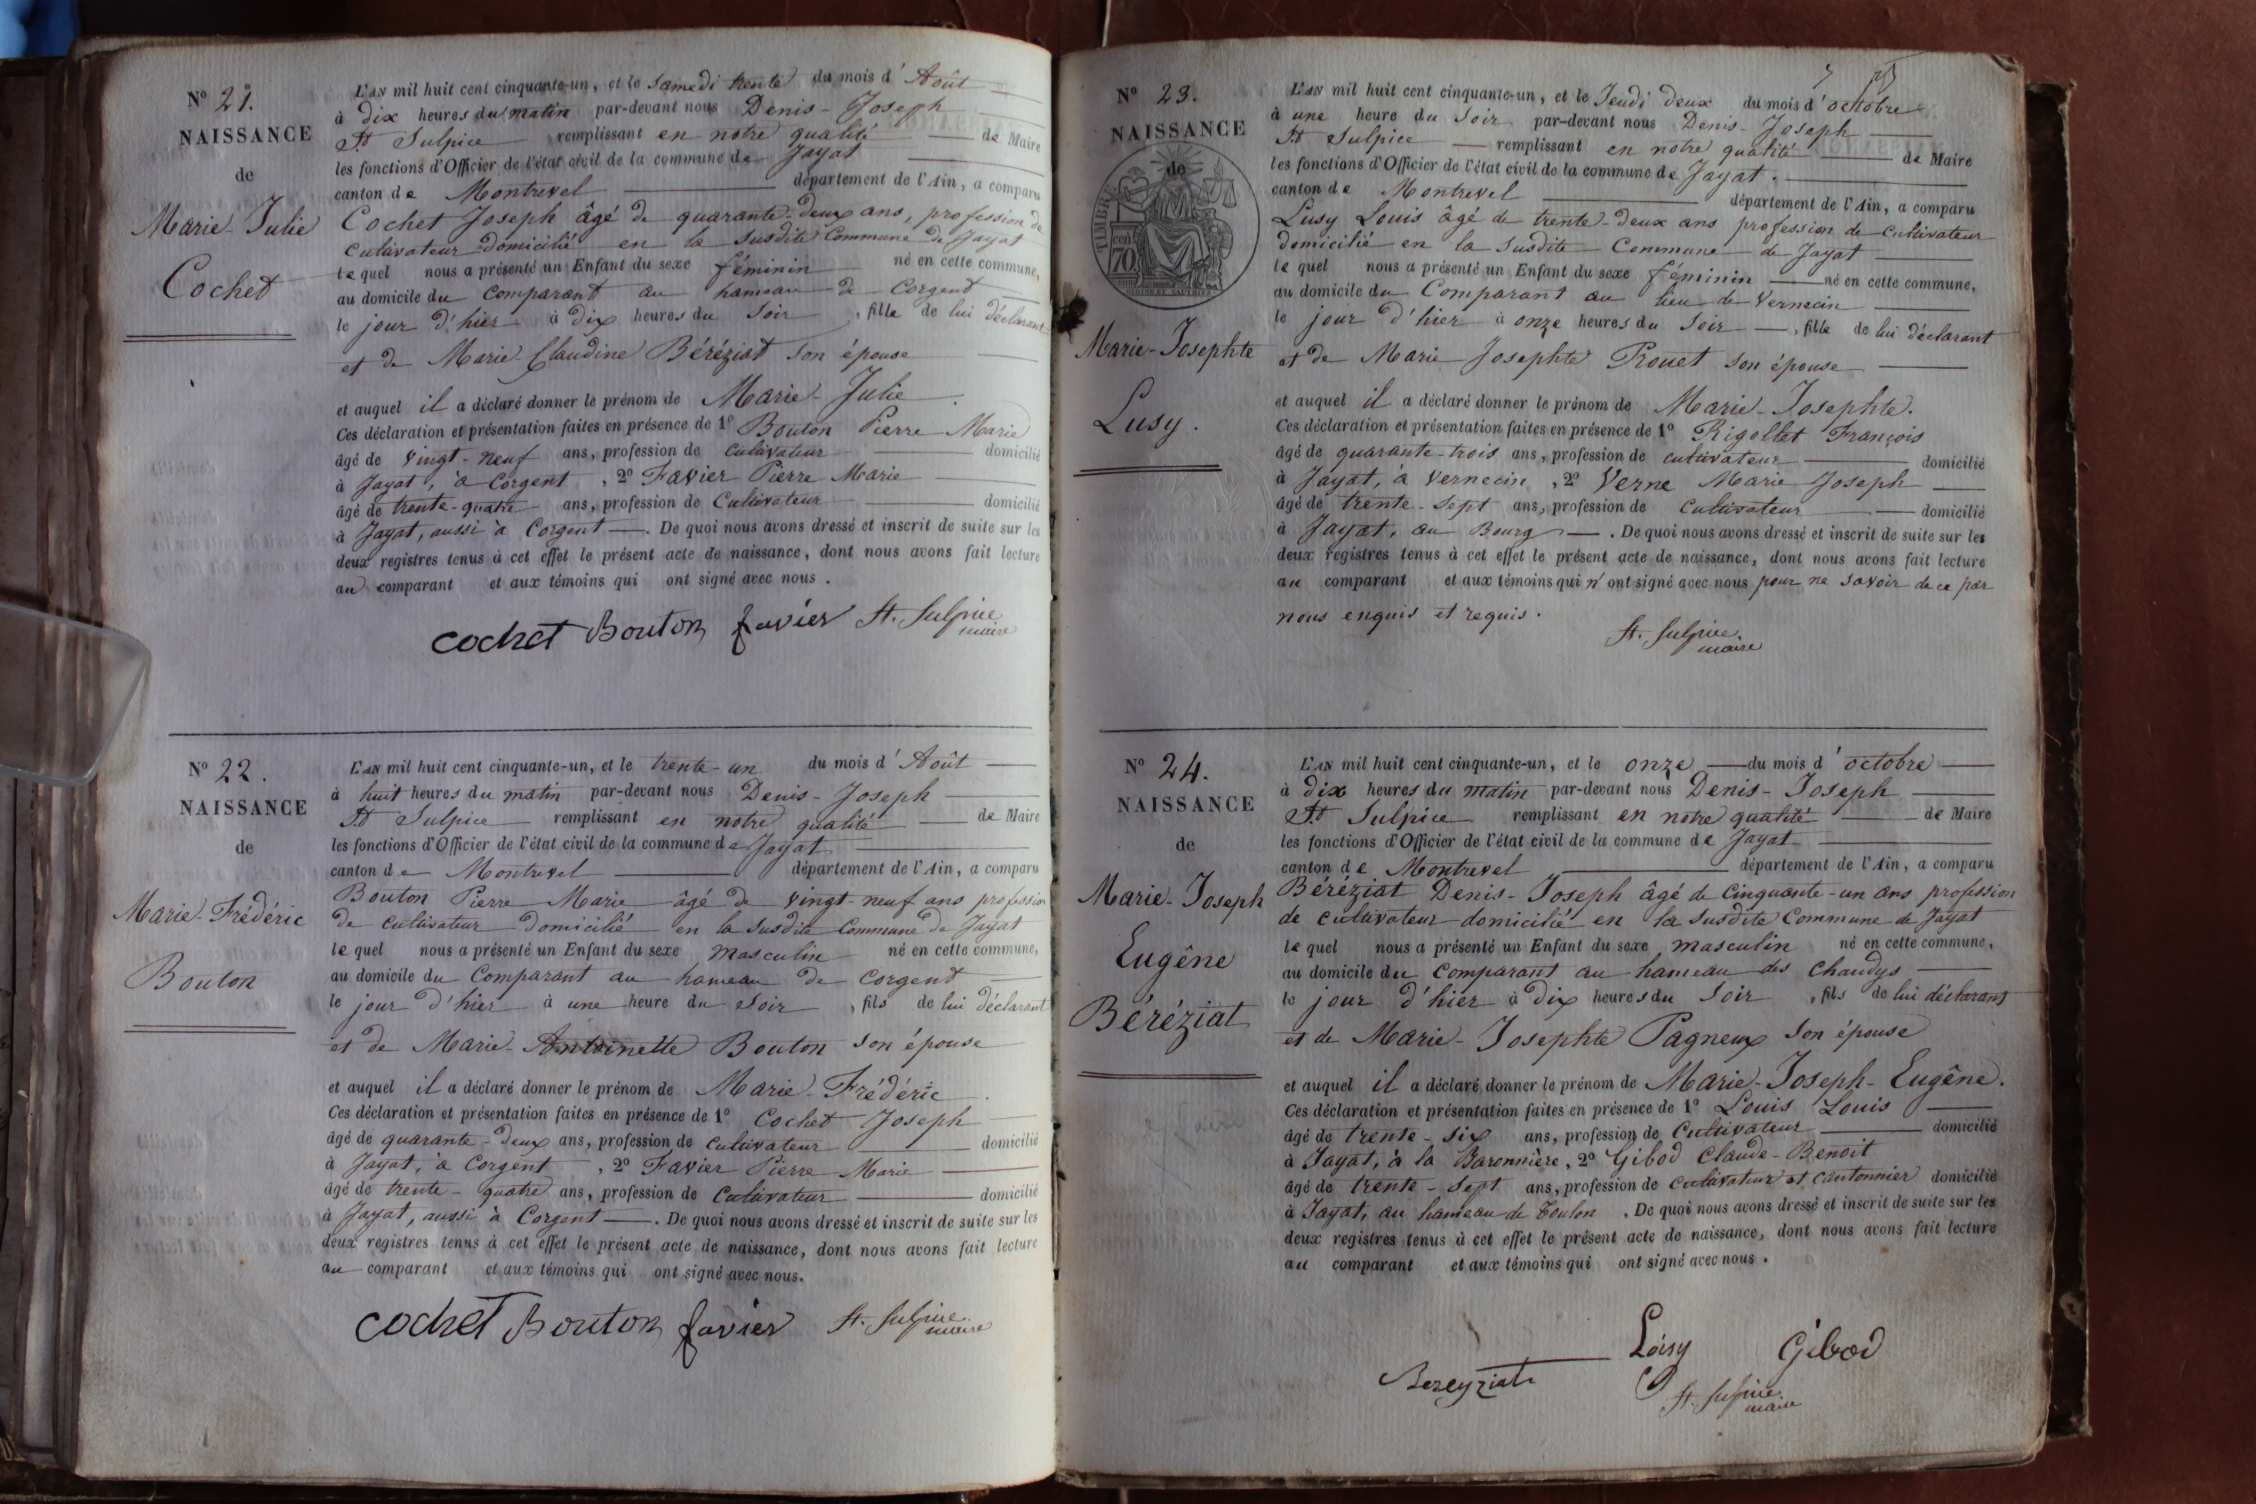 N° 21.
NAISSANCE
de
Marie-Julie
Cochet
L'AN mil huit cent cinquante-un, et le samedi trente du mois d'Août
à dix heures du matin par-devant nous Denis-Joseph
St Sulpice remplissant en notre qualité de Maire
les fonctions d'Officier de l'état civil de la commune de Jayat
canton de Montrevel département de l'Ain, a comparu
Cochet Joseph âgé de quarante-deux ans, profession de
cultivateur domicilié en la susdite Commune de Jayat
lequel nous a présenté un Enfant du sexe féminin né en cette commune,
au domicile du comparant au hameau de Corgent
le jour d'hier à dix heures du soir, fille de lui déclarant
et de Marie-Claudine Béréziat son épouse
et auquel il a déclaré donner le prénom de Marie-Julie.
Ces déclaration et présentation faites en présence de 1° Bouton Pierre Marie
âgé de vingt-neuf ans, profession de cultivateur domicilié
à Jayat, à Corgent, 2° Favier Pierre Marie
âgé de trente-quatre ans, profession de Cultivateur domicilié
à Jayat, aussi à Corgent. De quoi nous avons dressé et inscrit de suite sur les
deux registres tenus à cet effet le présent acte de naissance, dont nous avons fait lecture
au comparant et aux témoins qui ont signé avec nous.
cochet Bouton favier St. Sulpice
maire
N° 22.
NAISSANCE
de
Marie-Frédéric
Bouton
L'AN mil huit cent cinquante-un, et le trente-un du mois d'Août
à huit heures du matin par-devant nous Denis-Joseph
St Sulpice remplissant en notre qualité de Maire
les fonctions d'Officier de l'état civil de la commune de Jayat
canton de Montrevel département de l'Ain, a comparu
Bouton Pierre Marie âgé de vingt-neuf ans profession
de cultivateur domicilié en la susdite Commune de Jayat
lequel nous a présenté un Enfant du sexe masculin né en cette commune,
au domicile du Comparant au hameau de Corgent
le jour d'hier à une heure du soir, fils de lui déclarant
et de Marie-Antoinette Bouton son épouse
et auquel il a déclaré donner le prénom de Marie-Frédéric.
Ces déclaration et présentation faites en présence de 1° Cochet Joseph
âgé de quarante-deux ans, profession de cultivateur domicilié
à Jayat, à Corgent, 2° Favier Pierre Marie
âgé de trente-quatre ans, profession de Cultivateur domicilié
à Jayat, aussi à Corgent. De quoi nous avons dressé et inscrit de suite sur les
deux registres tenus à cet effet le présent acte de naissance, dont nous avons fait lecture
au comparant et aux témoins qui ont signé avec nous.
cochet Bouton favier St. Sulpice
maire
7
N° 23.
NAISSANCE
de
TIMBRE
70
Marie-Josephte
Lusy.
L'AN mil huit cent cinquante-un, et le Jeudi deux du mois d'octobre
à une heure du soir par-devant nous Denis-Joseph
St Sulpice remplissant en notre qualité de Maire
les fonctions d'Officier de l'état civil de la commune de Jayat.
canton de Montrevel département de l'Ain, a comparu
Lusy Louis âgé de trente-deux ans profession de cultivateur
domicilié en la susdite Commune de Jayat
lequel nous a présenté un Enfant du sexe féminin né en cette commune,
au domicile du Comparant au lieu de Vernecin
le jour d'hier à onze heures du soir, fille de lui déclarant
et de Marie Josephte Prouet son épouse
et auquel il a déclaré donner le prénom de Marie-Josephte.
Ces déclaration et présentation faites en présence de 1° Rigollet François
âgé de quarante-trois ans, profession de cultivateur domicilié
à Jayat, à Vernecin, 2° Verne Marie Joseph
âgé de trente-sept ans, profession de Cultivateur domicilié
à Jayat, au Bourg. De quoi nous avons dressé et inscrit de suite sur les
deux registres tenus à cet effet le présent acte de naissance, dont nous avons fait lecture
au comparant et aux témoins qui n'ont signé avec nous pour ne savoir de ce par
nous enquis et requis.
St. Sulpice.
maire
N° 24.
NAISSANCE
de
Marie-Joseph
Eugêne
Béréziat
L'AN mil huit cent cinquante-un, et le onze du mois d'octobre
à dix heures du matin par-devant nous Denis-Joseph
St Sulpice remplissant en notre qualité de Maire
les fonctions d'Officier de l'état civil de la commune de Jayat
canton de Montrevel département de l'Ain, a comparu
Béréziat Denis-Joseph âgé de Cinquante-un ans profession
de cultivateur domicilié en la susdite Commune de Jayat
lequel nous a présenté un Enfant du sexe masculin né en cette commune,
au domicile du comparant au hameau des Chandys
le jour d'hier à dix heures du soir, fils de lui déclarant
et de Marie-Josephte Pagneux son épouse
et auquel il a déclaré donner le prénom de Marie-Joseph-Eugêne.
Ces déclaration et présentation faites en présence de 1° Louis Louis
âgé de trente-six ans, profession de Cultivateur domicilié
à Jayat, à la Baronnière, 2° Gibod Claude-Benoit
âgé de trente-sept ans, profession de cultivateur et cantonnier domicilié
à Jayat, au hameau de Toulon. De quoi nous avons dressé et inscrit de suite sur les
deux registres tenus à cet effet le présent acte de naissance, dont nous avons fait lecture
au comparant et aux témoins qui ont signé avec nous.
Bereyziat Loisy Gibod
St. Sulpice.
maire